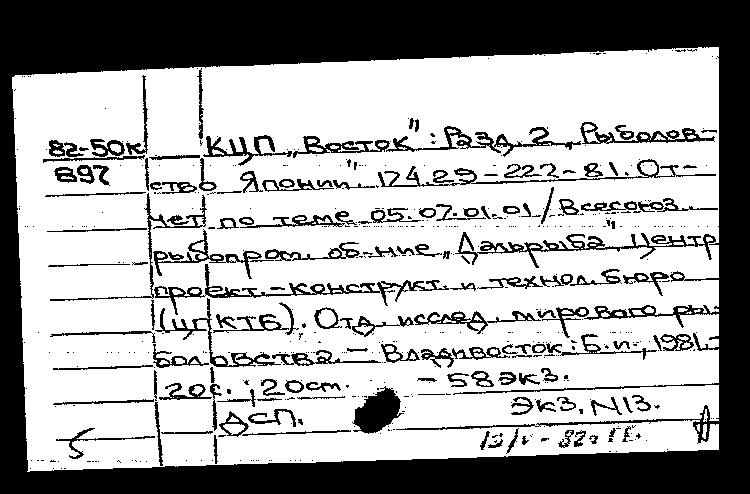 82-50к КЦП „Восток": Разд. 2 „Рыболов-
897 ство Японии". 174.29-222-81. От-
чет по теме 05.07.01.01/Всесоюз.
рыбопром. об-ние „Дальрыба", Центр
проект.-конструкт. и технол. бюро
(ЦПКТБ). Отд. исслед. мирового ры-
боловства. - Владивосток: Б.и., 1981.-
20с.; 20см. - 58экз.
ДСП. Экз. N13.
5 13/V-82г